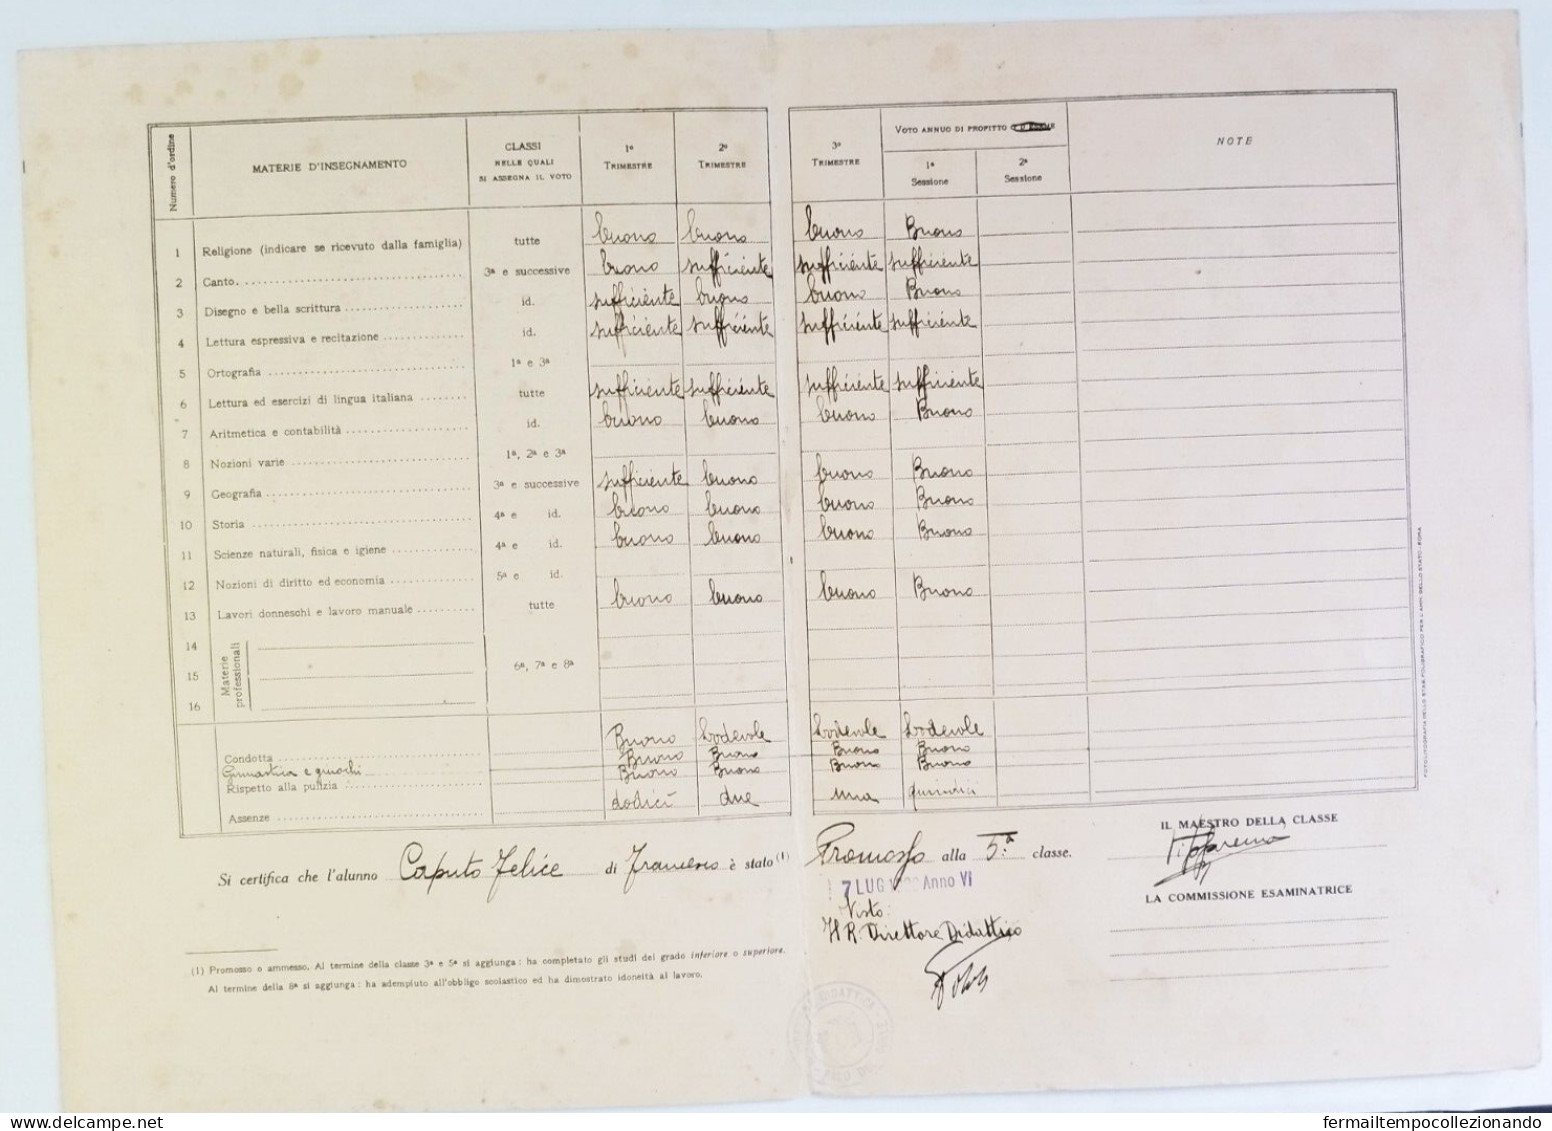 Numero d'ordine MATERIE D'INSEGNAMENTO CLASSI NELLE QUALI SI ASSEGNA IL VOTO 1º TRIMESTRE 2º TRIMESTRE 3º TRIMESTRE VOTO ANNUO DI PROFITTO 1ª Sessione 2ª Sessione NOTE
1 Religione (indicare se ricevuto dalla famiglia) tutte buono buono buono Buono
2 Canto. 3ª e successive buono sufficiente sufficiente sufficiente
3 Disegno e bella scrittura id. sufficiente buono buono Buono
4 Lettura espressiva e recitazione id. sufficiente sufficiente sufficiente sufficiente
5 Ortografia 1ª e 3ª
6 Lettura ed esercizi di lingua italiana tutte sufficiente sufficiente sufficiente sufficiente
7 Aritmetica e contabilità id. buono buono buono Buono
8 Nozioni varie 1ª, 2ª e 3ª
9 Geografia 3ª e successive sufficiente buono buono Buono
10 Storia 4ª e id. buono buono buono Buono
11 Scienze naturali, fisica e igiene 4ª e id. buono buono buono Buono
12 Nozioni di diritto ed economia 5ª e id.
13 Lavori donneschi e lavoro manuale tutte buono buono buono Buono
14
15 Materie professionali 6ª, 7ª e 8ª
16
Condotta Buono Lodevole Lodevole Lodevole
Ginnastica e giuochi Buono Buono Buono Buono
Rispetto alla pulizia Buono Buono Buono Buono
Assenze dodici due una quindici
Si certifica che l'alunno Caputo Felice di Francesco è stato (1) Promosso alla 5.ª classe.
7 LUG Anno VI
Visto:
Il R. Direttore Didattico
IL MAESTRO DELLA CLASSE
LA COMMISSIONE ESAMINATRICE
(1) Promosso o ammesso. Al termine della classe 3ª e 5ª si aggiunga: ha completato gli studi del grado inferiore o superiore.
Al termine della 8ª si aggiunga: ha adempiuto all'obbligo scolastico ed ha dimostrato idoneità al lavoro.
DIDATTICA
fermailtempocollezionando